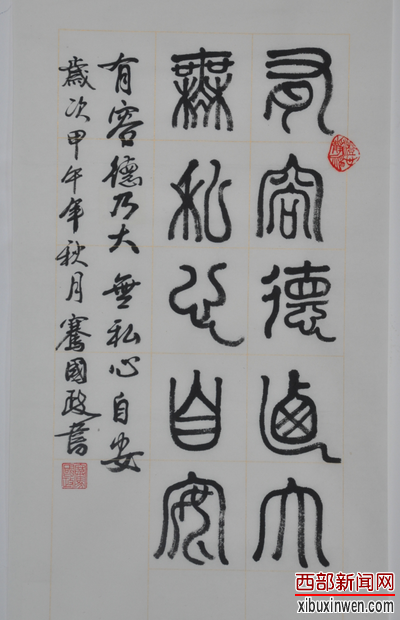 有容德迺大
無私心自安
有容德乃大 無私心自安
歲次甲午年秋月騫國政書
西部新闻网
xibuxinwen.com